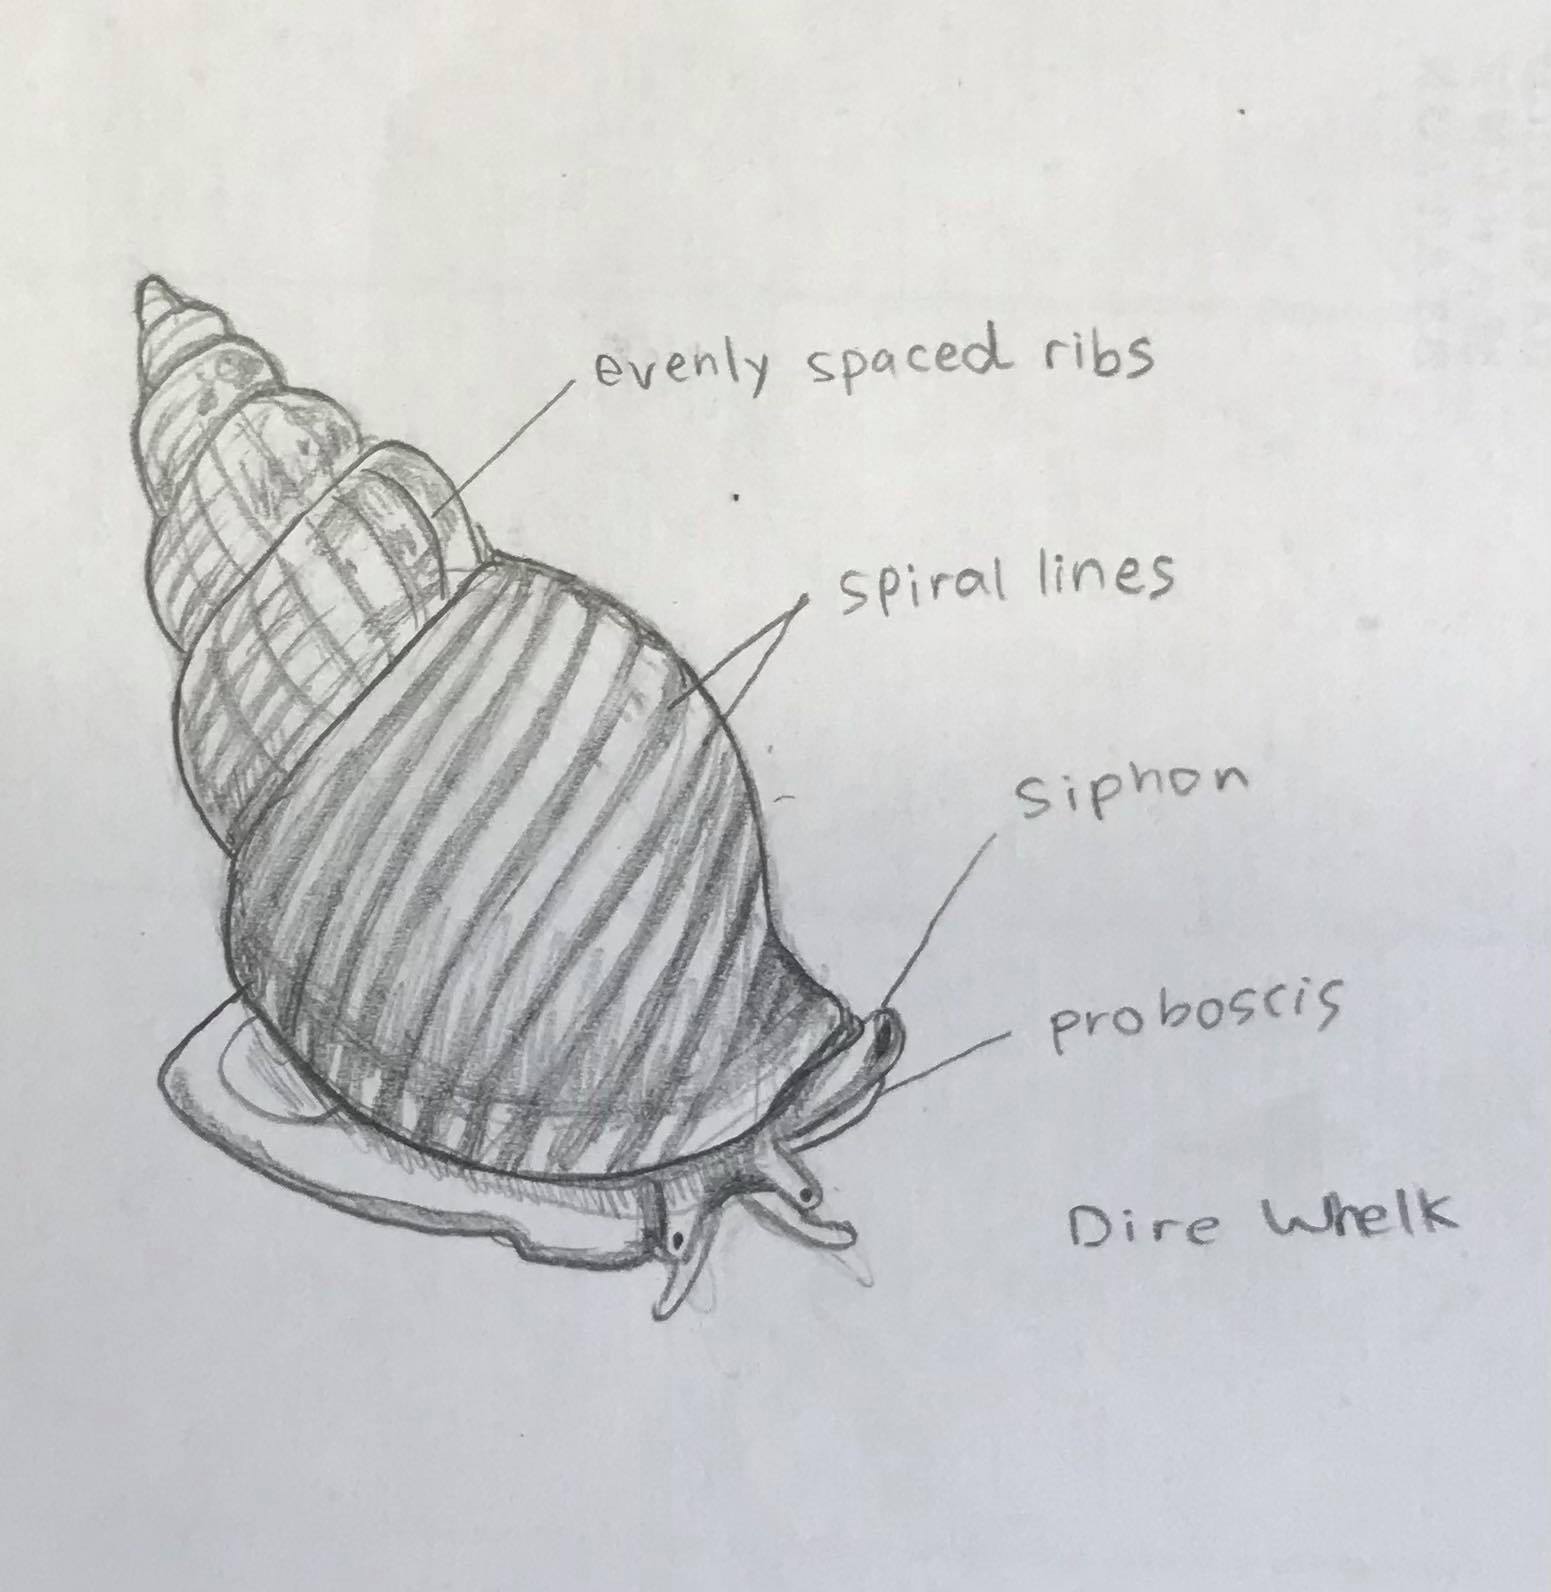 evenly spaced ribs
spiral lines
siphon
proboscis
Dire Whelk